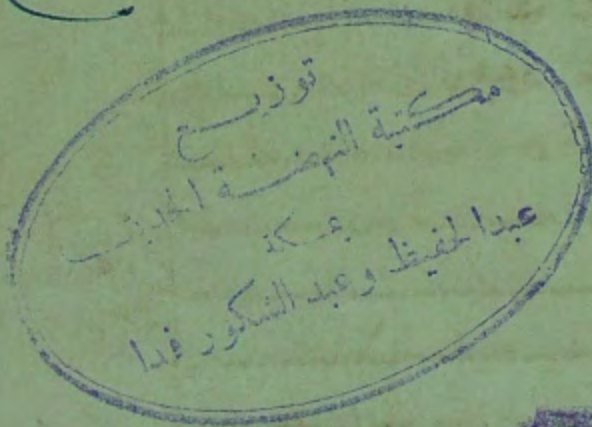 توزيع
مكتبة النهضة الحديثة
بمكة
عبد الحفيظ وعبد الشكور فدا